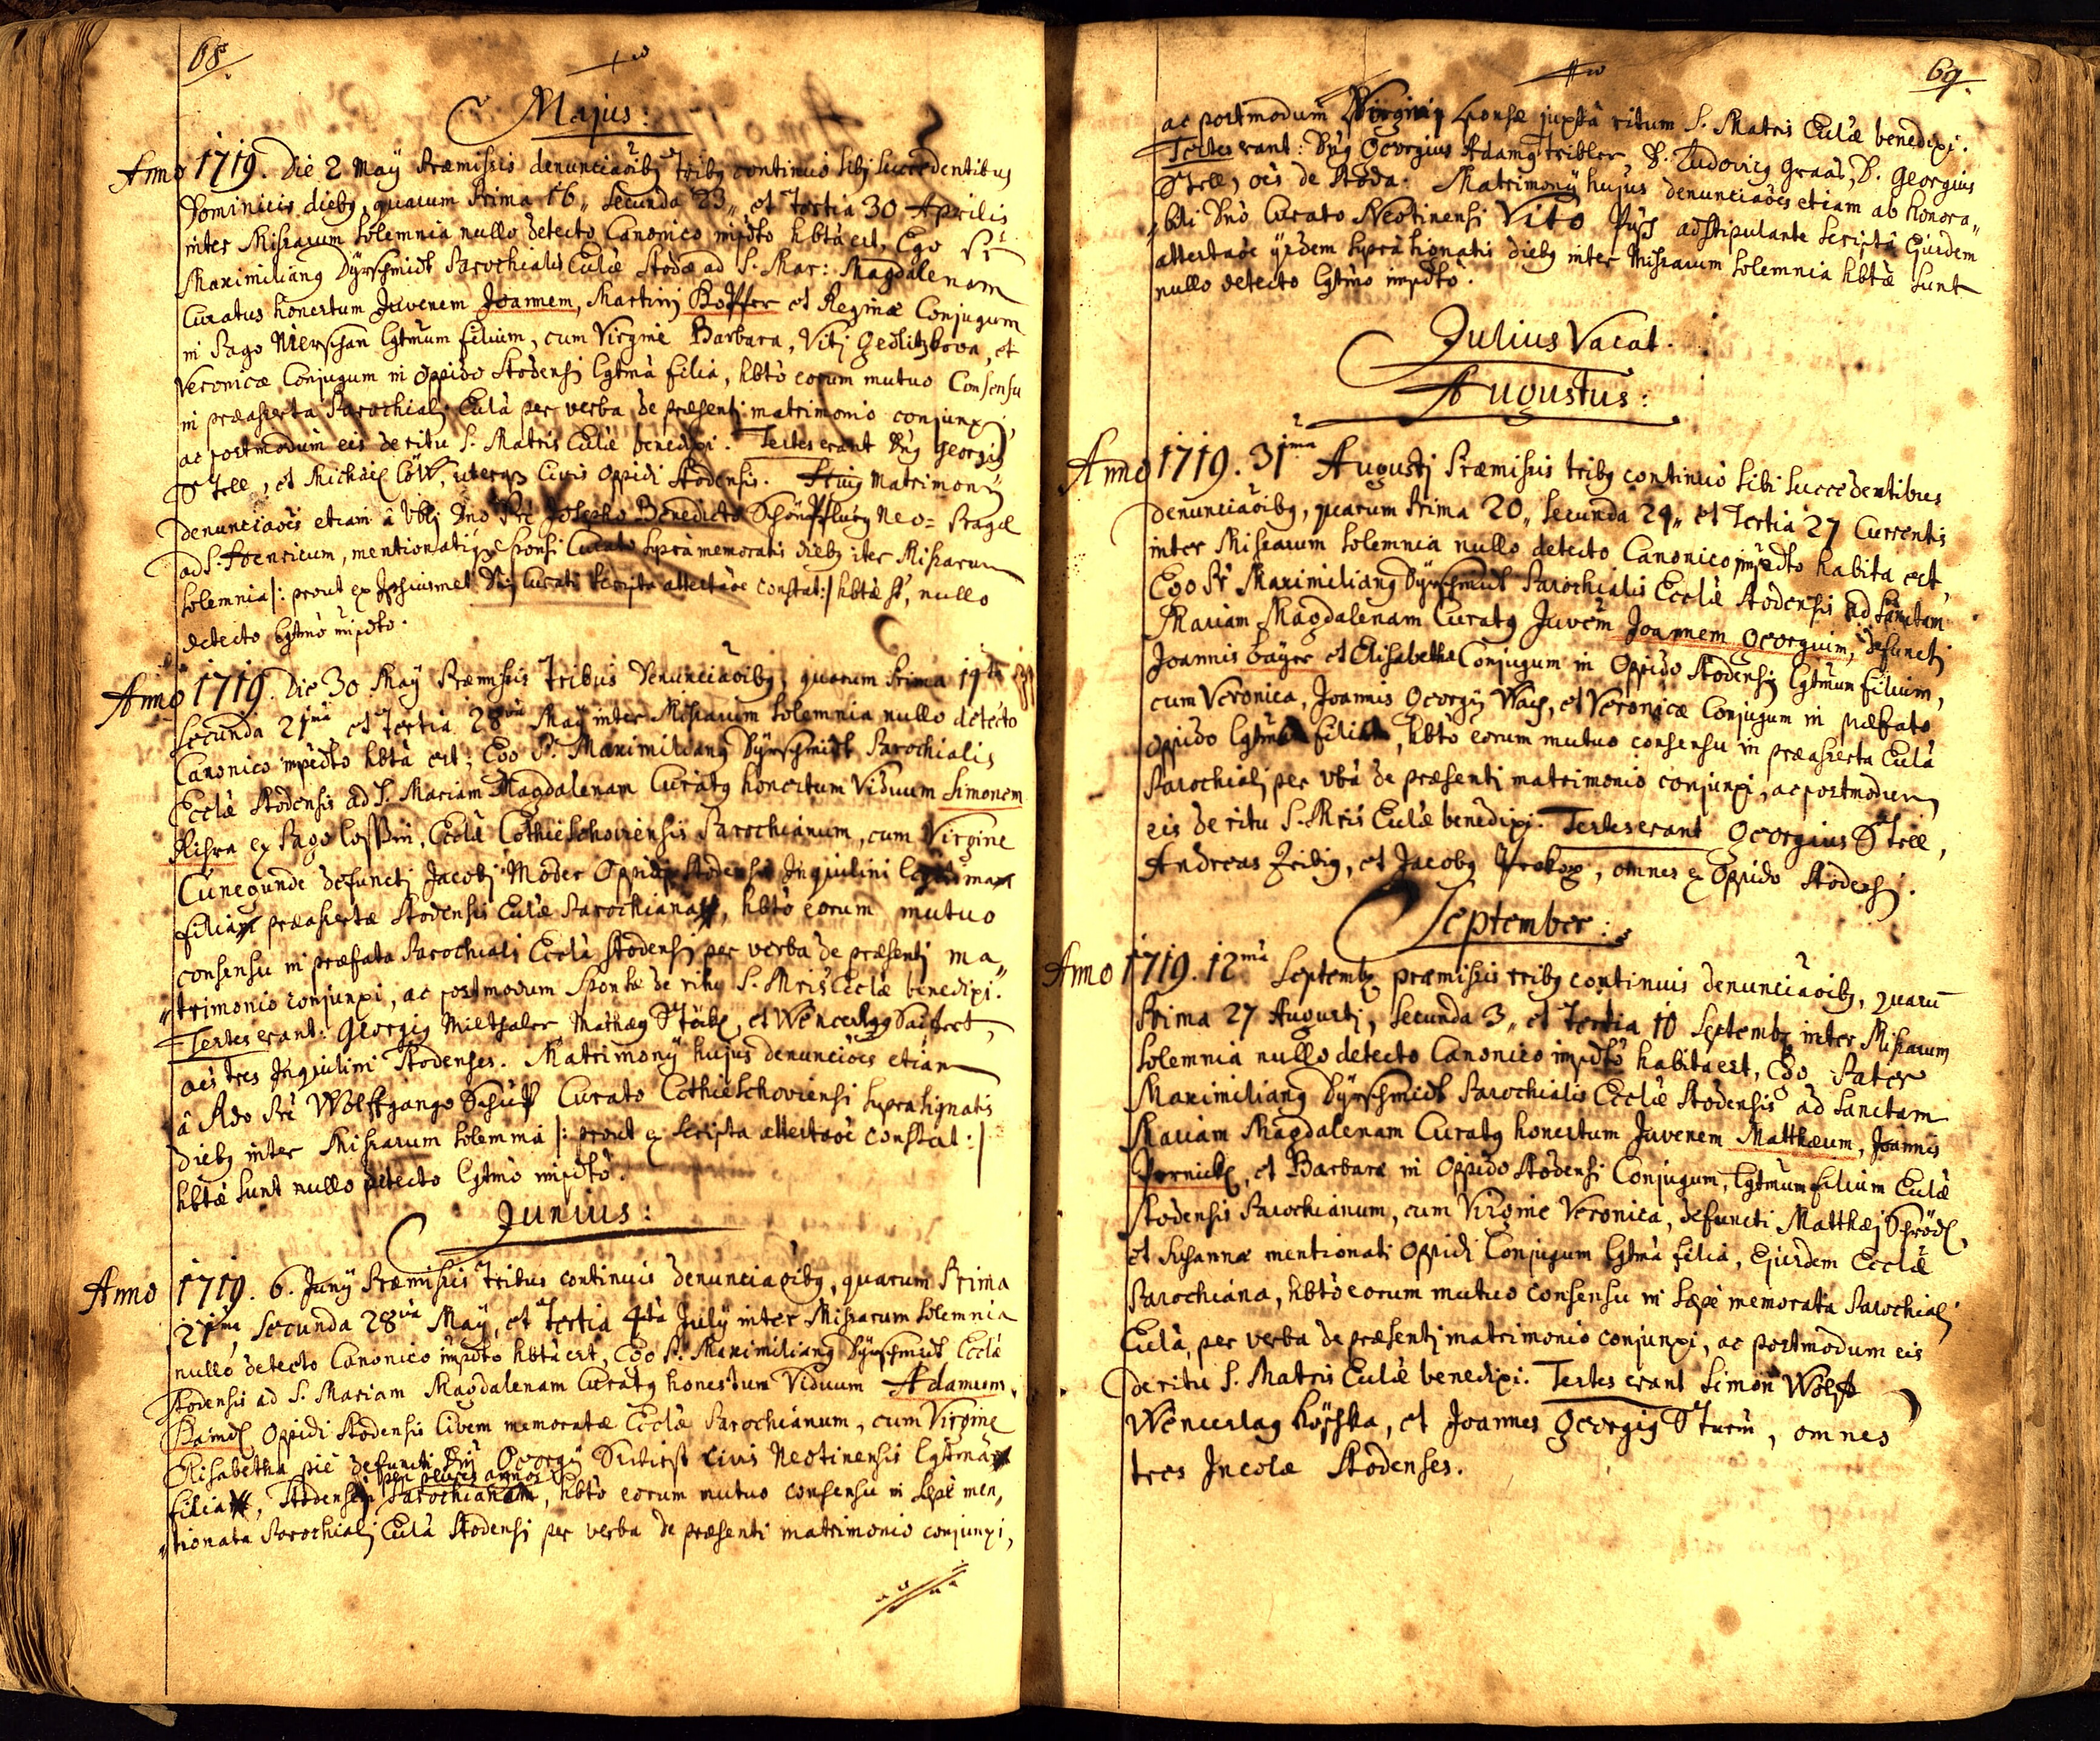 68.
Majus:
Anno 1719. Die 2 Maÿ Præmissis denunciaõibg tribg continuò sibi succedentibus
Dominicis diebg, quarum Prima 16, Secunda 23, et Tertia 30 Aprilis
inter Missarum solemnia nullo detecto Canonico impdto hbta est, Ego Pr
Maximiliang Dÿrschmidt Parochialis Eclæ Stodæ ad S. Mar: Magdalenam
Curatus honestum Juvenem Joannem, Martini Hopffer et Reginæ Conjugum
in Pago Nierschan lgtmum filium, cum Virgine Barbara, Viti Gedlitzkova, et
Veronicæ Conjugum in Oppido Stodensi lgtmâ filiâ, hbto eorum mutuo Consensu
in præaserta Parochiali Eclâ per verba de præsenti matrimonio conjunxi,
ac postmodum eis de ritu S. Matris Eclæ benedixi. Testes erant Dng Georgig
Stell, et Michäel Löw, uterq Civis Oppidi Stodensis. Huig Matrimonÿ
denunciaões etiam â Vbli Dno Pre Josepho Benedicto Schönpflug Neo= Pragæ
ad S. Henricum, mentionati Sponsi Curato supra memoratis diebg iter Missarum
solemnia |: prout ex Ipsiusmet Dni Curati scripta attestaõe constat :| hbtæ st, nullo
detecto lgtmo impdto.
Anno 1719. Die 30 Maÿ Præmissis Tribus Denunciaõibg, quarum Prima 19na
secunda 21ma et Tertia 28va Maÿ inter Missarum solemnia nullo detecto
Canonico impedto hbta est, Ego P. Maximiliang Dÿrschmidt Parochialis
Ecclæ Stodensis ad S. Mariam Magdalenam Curatg honestum Viduum Simonem
Rissra ex Pago Losstin, Ecclæ Cothieschoviensis Parochianum, cum Virgine
Cunegunde defuncti Jacobi Moder Oppidi Stodensis Inquilini legitima
filia præasertæ Stodensis Eclæ Parochiana, hbto eorum mutuo
consensu in præfata Parochiali Ecclâ Stodensi per verba de præsenti ma„
„trimonio conjunxi, ac postmodum Sponsæ de ritu S. Mris Ecclæ benedixi.
Testes erant: Georgig Milthaler Mathæg Stökl, et Wenceslag Sacfert,
oës tres Inquilini Stodenses. Matrimonÿ hujus denunciões etiam
â Rdo Pre Wolffgango Schüss Curato Cothieschoviensi supra signatis
diebg inter Missarum solemnia |: prout ex scripta attestaõe constat :|
hbtæ sunt nullo detecto lgtmo impdto.
Junius:
Anno 1719. 6. Junÿ Præmissis Tribus continuis denunciaõibg, quarum Prima
21ma Secunda 28va Maÿ, et Tertia 4ta Julÿ inter Missarum solemnia
nullo detecto Canonico impdto hbta est, Ego P. Maximiliang Dÿrschmidt Ecclæ
Stodensis ad S. Mariam Magdalenam Curatg honestum Viduum Adamum
Haindl Oppidi Stodensis Civem memoratæ Ecclæ Parochianum, cum Virgine
Elisabetha piè defuncti Dni Georgÿ civis Neotinensis lgtmâ
per plures annos
filia, Stodensi Parochiana, hbto eorum mutuo consensu in sæpe men„
„tionata Parochiali Eclâ Stodensi per verba de præsenti matrimonio conjunxi,
69.
ac postmodum Virgini Sponsæ juxta ritum S. Matris Eclæ benedixi.
Testes erant: Dng Georgius Adamg Tribler, D. Ludovicg Graas, D. Georgius
Stell, oës de Stoda. Matrimonÿ hujus denunciaões etiam ab honora„
„bli Dno Curato Neotinensi Vito adstipulante scripta Ejusdem
attestaõe ÿsdem supra signatis diebg inter Missarum solemnia hbtæ sunt
nullo detecto lgtmo impdto.
Julius Vacat.
Augustus:
Anno 1719. 31ma Augusti Præmissis tribg continuò sibi succedentibus
denunciaõibg, quarum Prima 20, Secunda 24, et Tertia 27 Currentis
inter Missarum solemnia nullo detecto Canonico impdto habita est,
Ego Pr Maximiliang Dÿrschmidt Parochialis Ecclæ Stodensis ad Sanctam
Mariam Magdalenam Curatg Juvem Joannem Georgium, defuncti
Joannis Saÿer et Elisabethæ Conjugum in Oppido Stodensi lgtmum filium,
cum Veronica, Joannis Georgÿ Wach, et Veronicæ Conjugum in præfato
Oppido lgtma filia, hbto eorum mutuo consensu in præaserta Eclâ
Parochiali per vba de præsenti matrimonio conjunxi, ac postmodum
eis de ritu S. Mris Eclæ benedixi. Testes erant Georgius Stell,
Andreas Zeidig, et Jacobg Prokop, omnes ex Oppido Stodensi.
September:
Anno 1719. 12ma Septembg præmissis tribg continuis denunciaõibg, quarũ
Prima 27 Augusti, Secunda 3, et Tertia 10 Septembg inter Missarum
solemnia nullo detecto Canonico impdto habita est, Ego Pater
Maximiliang Dÿrschmidt Parochialis Ecclæ Stodensis ad Sanctam
Mariam Magdalenam Curatg honestum Juvenem Matthæum, Joannis
Pernickl, et Barbaræ in Oppido Stodensi Conjugum, lgtmum filium Eclæ
Stodensis Parochianum, cum Virgine Veronica, defuncti Matthæi Schrödl,
et Susannæ mentionati Oppidi Conjugum lgtmâ filiâ, Ejusdem Ecclæ
Parochiana, hbto eorum mutuo consensu in sæpe memorata Parochiali
Eclâ, per verba de præsenti matrimonio conjunxi, ac postmodum eis
de ritu S. Matris Eclæ benedixi. Testes erant Simon Wolff
Wenceslag Köschka, et Joannes Georgig Sturm, omnes
tres Incolæ Stodenses.